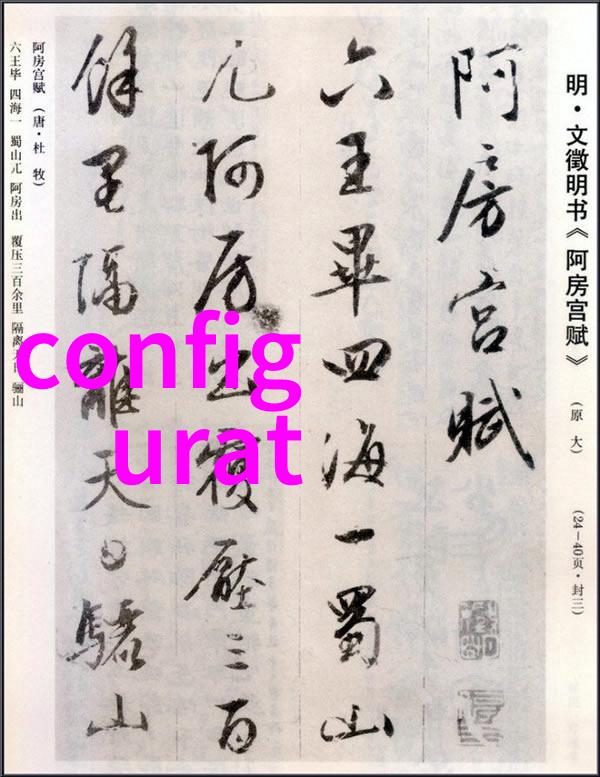 明·文徵明书《阿房宫赋》 (原大) (24—40页·封三)
阿房宮賦
六王畢四海一蜀山
兀阿房出覆壓三百
餘里隔離天日驪山
阿房宫赋 (唐·杜 牧)
六王毕 四海一 蜀山兀 阿房出 覆压三百余里 隔离天日 骊山
config
urat